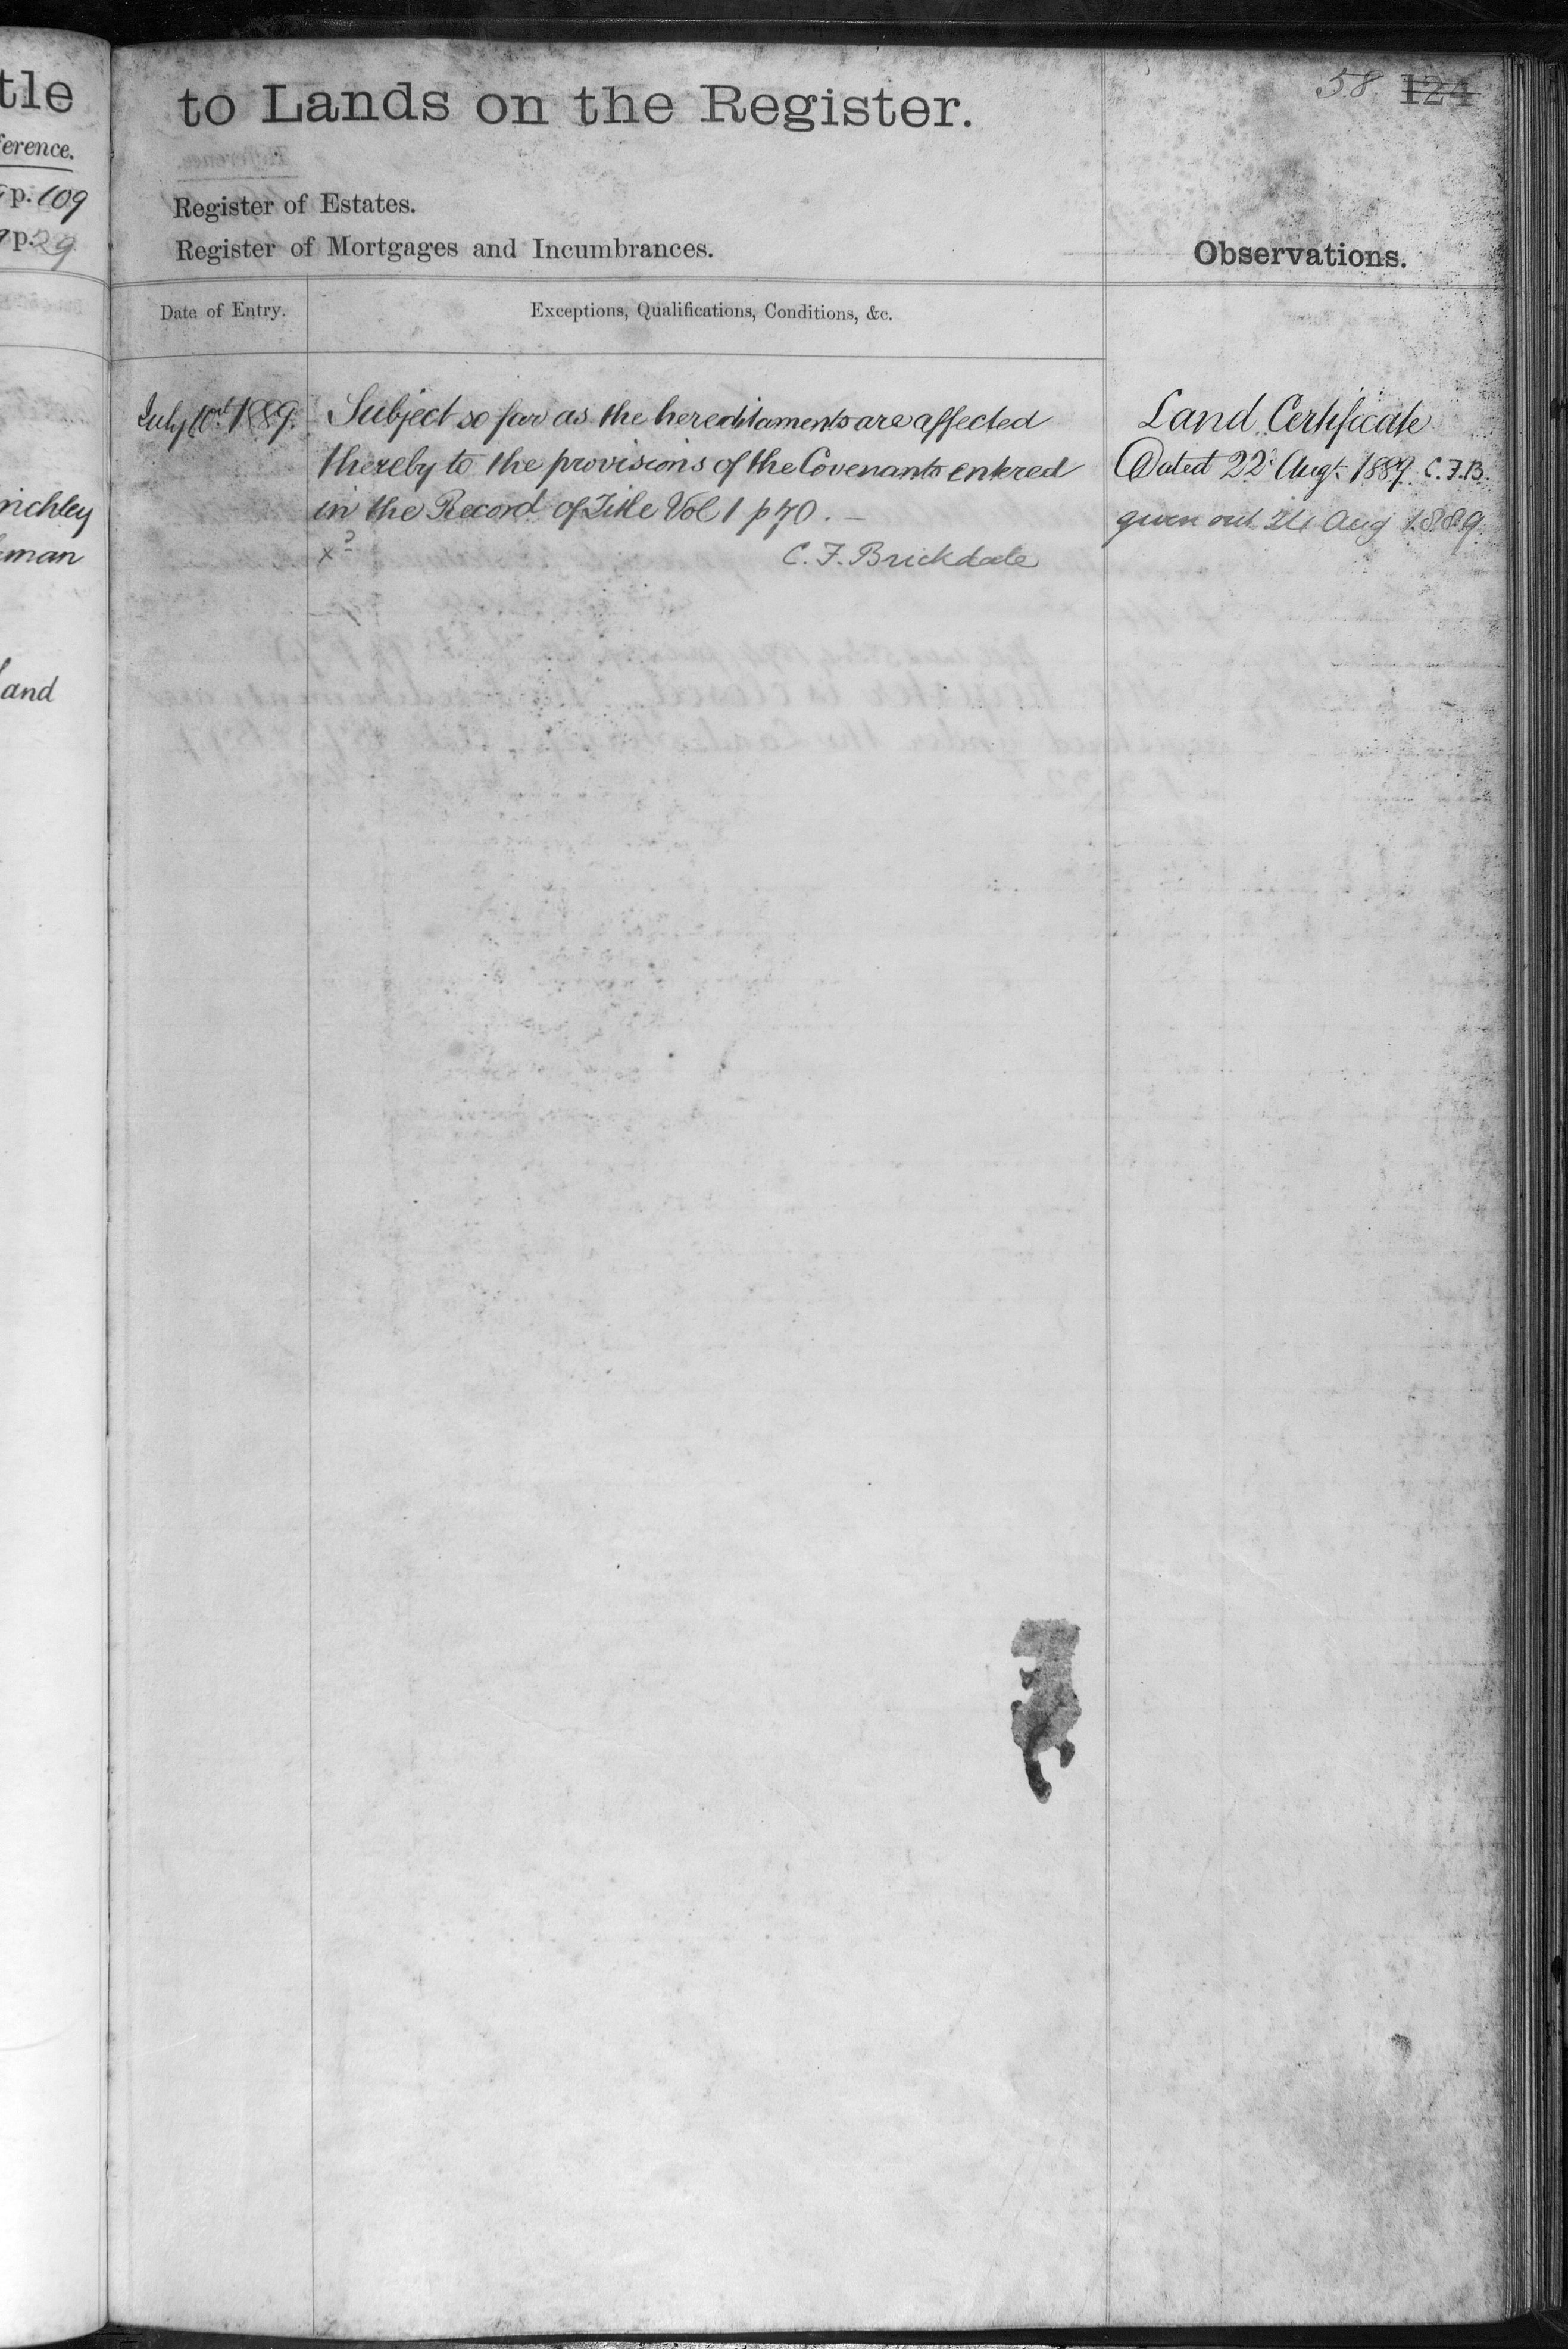 tle
erence.
p. 109
p. 29
nchley
man
and
to Lands on the Register.
58 124
Register of Estates.
Register of Mortgages and Incumbrances.
Observations.
Date of Entry.
Exceptions, Qualifications, Conditions, &c.
July 10th 1889. Subject so far as the hereditaments are affected
thereby to the provisions of the Covenants entered
in the Record of Title Vol 1 p 70. —
x ?
C. F. Brickdale
Land Certificate
Dated 22d Augt. 1889. C.F.B.
given out Aug 1889.